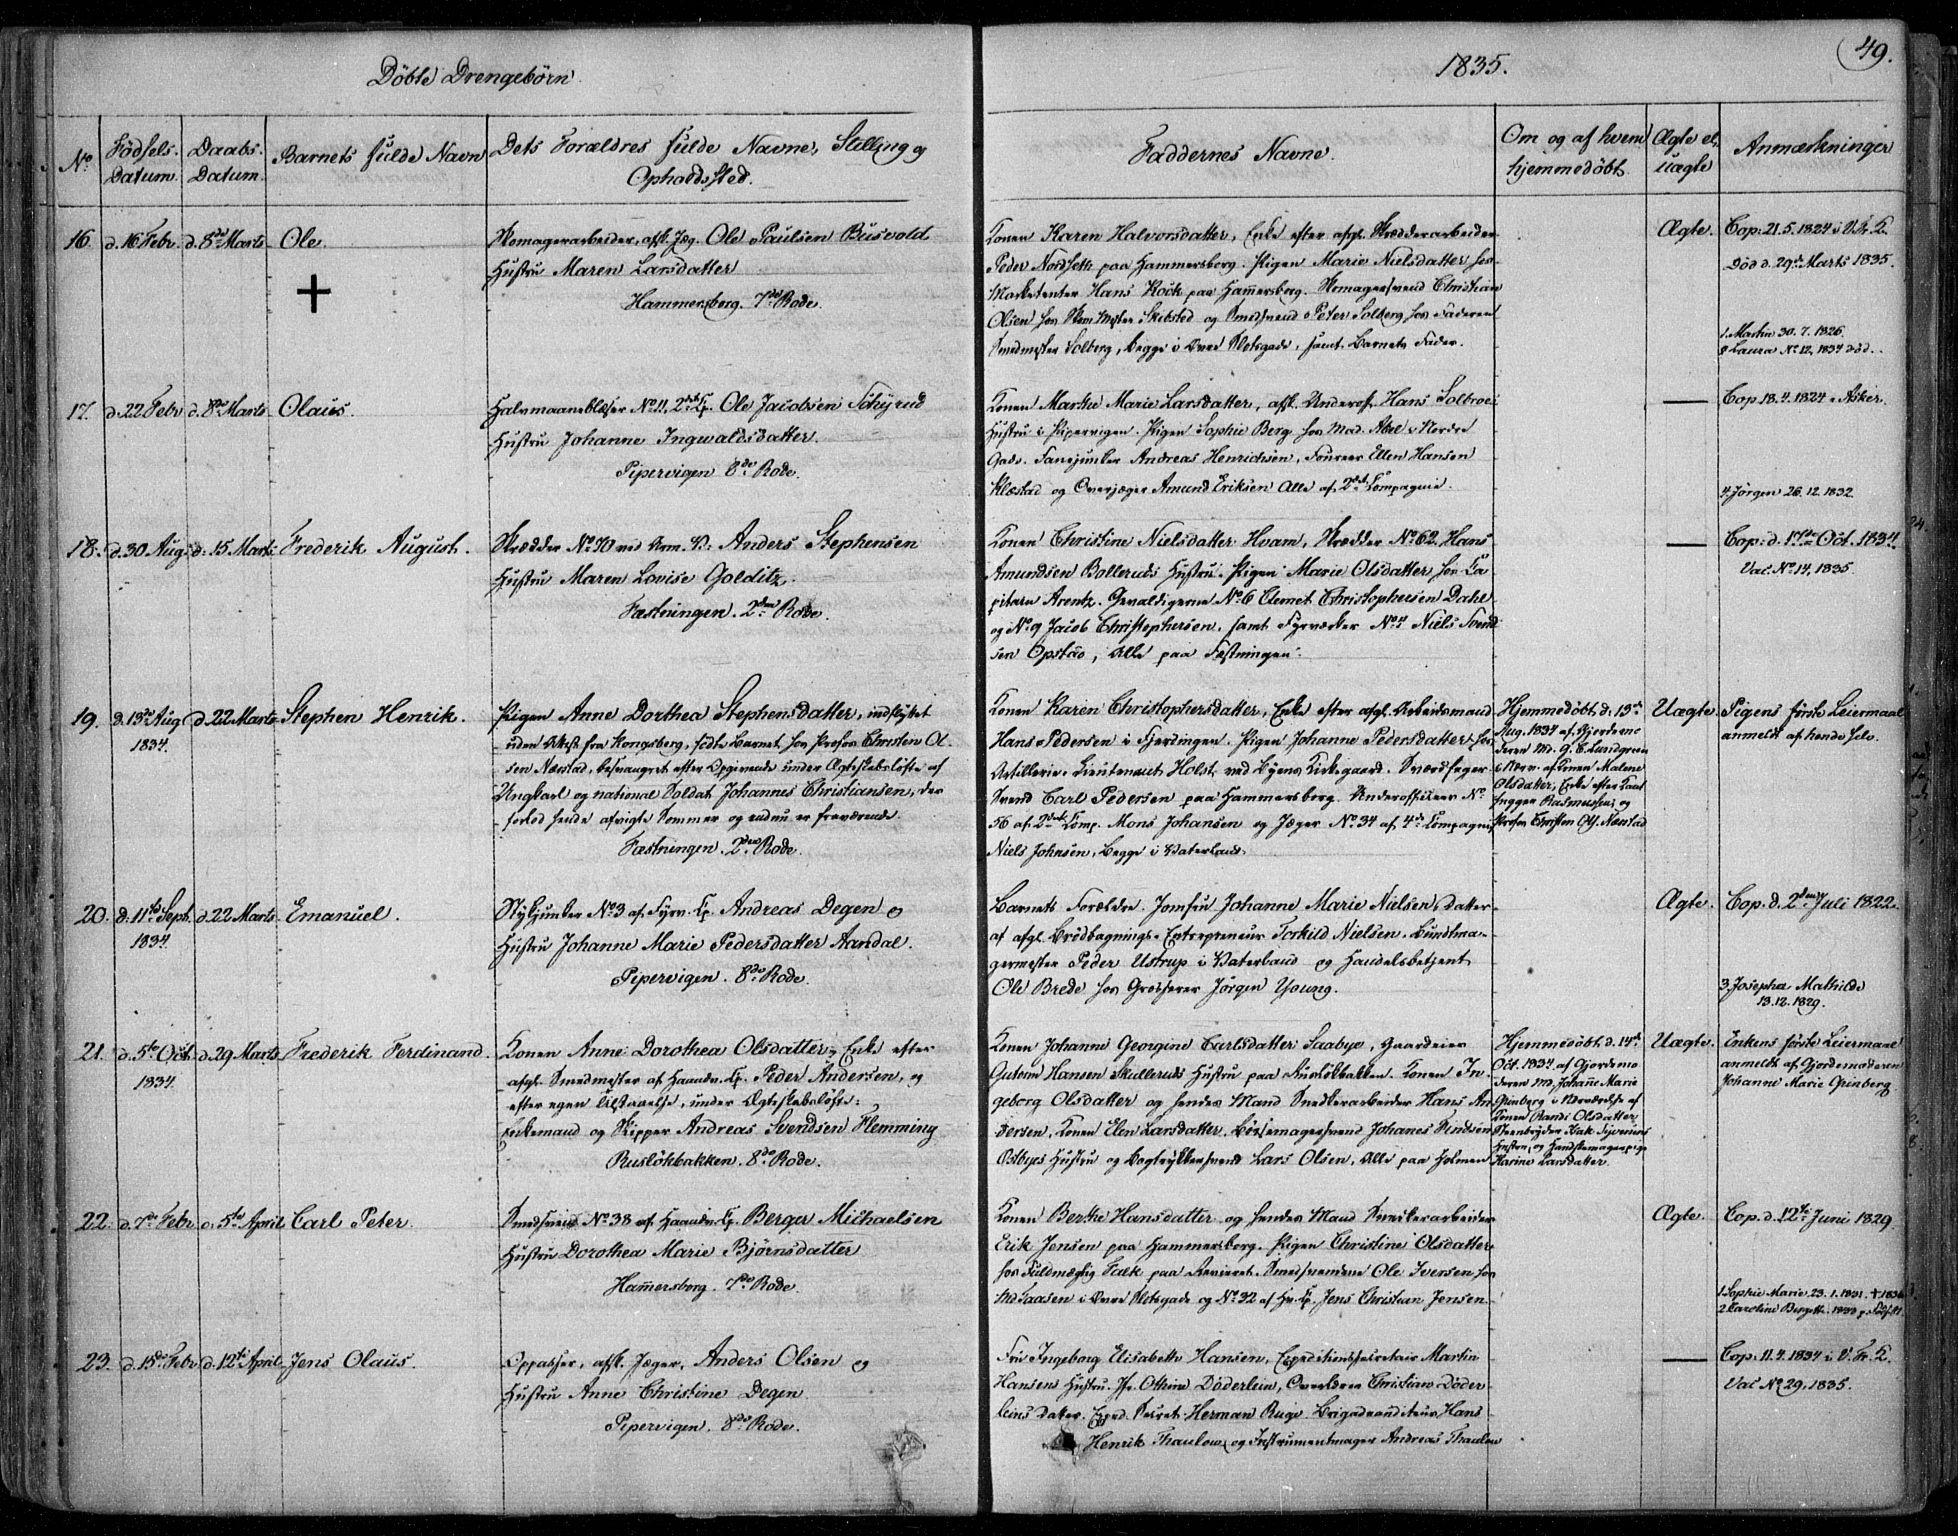 49.
Döbte Drengebörn
1835.
No
Födsels-
Datum.
Daabs-
Datum.
Barnets fulde Navn
Dets Forældres fulde Navne, Stilling og
Opholdssted.
Faddernes Navne.
Om og af hvem
hjemmedöbt.
Ægte el.
uægte
Anmærkninger
16. d. 16 Febr. d. 8de Marts Ole.
Skomagerarbeider, afsk. Jæg. Ole Paulsen Busvold
Hustru Maren Larsdatter
Hammersborg. 7de Rode.
Konen Karen Halvorsdatter, Enke efter afgl. Skrædderarbeider
Peder Nordseth paa Hammersborg. Pigen Marie Nielsdatter hos
Marketenter Hans Kock paa Hammersborg. Skomagersvend Christian
Olsen hos Skom. Mester Skibsted og Smedsvend Peter Solberg hos Faderen
Smedmester Solberg, begge i Övre Slotsgade, samt Barnets Fader.
Ægte.
Cop: 21.5.1824 i V. Fr. K.
Död d. 29de Marts 1835.
1. Martin 30.7.1826.
Laura No 12, 1834 död.
17. d. 22 Febr d. 8de Marts Olaus.
Halvmaaneblæser No 11, 2det Cp. Ole Jacobsen Schyrud
Hustru Johanne Ingwaldsdatter.
Pipervigen 8de Rode.
Konen Marthe Marie Larsdatter, afsk. Underof. Hans Solbroe
Hustru i Pipervigen. Pigen Sophie Berg hos Mad. Abel i Nordre
Gade. Fanejunker Andreas Henrichsen, Foureer Ellen Hansen
Klæstad og Overjæger Amund Eriksen alle af 2det Compagnie.
—
Cop. 18.4.1824 i Asker.
4. Jörgen 26.12.1832
18. d. 30 Aug. d. 15 Marts Frederik August.
Skrædder No 90 ved Arm. V: Anders Stephensen
Hustru Maren Lovise Golditz.
Fæstningen. 2den Rode.
Konen Christine Nielsdatter Hvam, Skrædder No 62 Hans
Amundsen Bolleruds Hustru. Pigen Marie Olsdatter hos Ca-
pitain Arentz. Gevaldigerne No 6 Clemet Christophersen Dahl
og No 9 Jacob Christophersen, samt Fyrværker No 11 Niels Svend
sen Opstad, alle paa Fæstningen.
—
Cop: d. 1ste Oct. 1834.
Vac. No 14, 1835.
19. d. 13de Aug d. 22 Marts Stephen Henrik.
1834.
Pigen Anne Dorthea Stephensdatter, indflyttet
uden Attest fra Kongsberg, födte Barnet hos Profos Christen Ol-
sen Næstad, besvangret efter Opgivende under Ægteskabslöfte af
Ungkarl og national Soldat Johannes Christiansen, der
forlod hende afvigte Sommer og endnu er fraværende.
Fæstningen. 2den Rode.
Konen Karen Christophersdatter, Enke efter afgl. Arbeidsmand
Hans Pedersen i Fjerdingen. Pigen Johanne Pedersdatter hos
Artillerie-Lieutenant Holst ved Byens Kirkegaard. Sværdfeger-
Svend Carl Pedersen paa Hammersborg. Underofficeer No
56 af 2det Comp. Mons Johansen og Jæger No 34 af 4de Compagnie
Niels Johnsen, begge i Vaterland.
Hjemmedöbt d. 13de
Aug. 1834 af Gjordemo
deren Md. G. E. Lundgreen
i Nærv. af Konen Malene
Olsdatter, Enke efter
Rasmussen, og
Profos Christen Ols. Næstad
Uægte.
Pigens förste Leiermaal
anmeldt af hende selv.
20. d. 11te Sept. d. 22 Marts Emanuel.
1834.
Stykjunker No 3 af Fyrv. Cp. Andreas Degen og
Hustru Johanne Marie Pedersdatter Aandal.
Pipervigen. 8de Rode.
Barnets Forældre. Jomfru Johanne Marie Nielsen, Datter
af afgl. Brödbagnings-Entrepreneur Torkild Nielsen. Bundtma-
germester Peder Ustrup i Vaterland og Handelsbetjent
Ole Brede hos Grosserer Jörgen Young.
Ægte.
Cop. d. 2den Juli 1822.
3. Josepha Mathilde
13.12.1829.
21. d. 5te Oct. d. 29 Marts Frederik Ferdinand.
1834.
Konen Anne Dorothea Olsdatter, Enke efter
afgl. Smedmester af Haandv. Cp. Peder Andersen, og
efter egen Tilstaaelse, under Ægteskabslöfte:
Enkemand og Skipper Andreas Svendsen Flemming
Ruslökbakken. 8de Rode.
Konen Johanne Georgine Carlsdatter Saabye, Gaardeier
Gutorm Hansen Skulleruds Hustru paa Ruslökbakken. Konen In-
geborg Olsdatter og hendes Mand Snedkerarbeider Hans An
dersen, Konen Elen Larsdatter. Bössemagersvend Johanes
Östbyes Hustru og Bogtrykkersvend Lars Olsen, alle paa Holmen
Hjemmedöbt d. 14de
Oct. 1834 af Gjordemo
deren Md. Johanne Marie
Grünberg i Nærværelse af
Konen Randi Olsdatter
Steenbryder
Hustru, og
Karine Larsdatter.
Uægte.
Enkens förste Leiermaal
anmeldt af Gjordemoderen
Johanne Marie Grünberg
22. d. 7de Febr d. 5te April Carl Peter.
Smedsvend No 38 af Haandv. Cp. Berger Michaelsen
Hustru Dorothea Marie Björnsdatter
Hammersborg. 7de Rode.
Konen Berthe Hansdatter og hendes Mand Snedkerarbeider
Erik Jensen paa Hammersborg. Pigen Christine Olsdatter
hos Fuldmægtig Falk paa Revieret. Smedsvendene Ole Iversen hos
Md Faasen i Övre Slotsgade og No 32 af Hv. Cp. Jens Christian Jensen.
Ægte.
Cop. d. 12te Juni 1829
1. Sophie Marie 23.1.1831.
2. Caroline Bergitte. 1833
23. d. 15de Febr d. 12te April Jens Olaus.
Oppasser, afsk. Jæger, Anders Olsen og
Hustru Anne Christine Degen
Pipervigen. 8de Rode.
Fru Ingeborg Elisabeth Hansen, Expeditionssecretair Martin
Hansens Hustru. Jfr. Othine Döderlein, Overlærer Christian Döder-
leins Datter. Exped. Secret. Herman Ruge. Brigadeauditeur Hans
Henrik Thaulow og Instrumentmager Andreas Thaulow
—
Cop. 11.4.1834 i V. Fr. K.
Vac No 29. 1835.